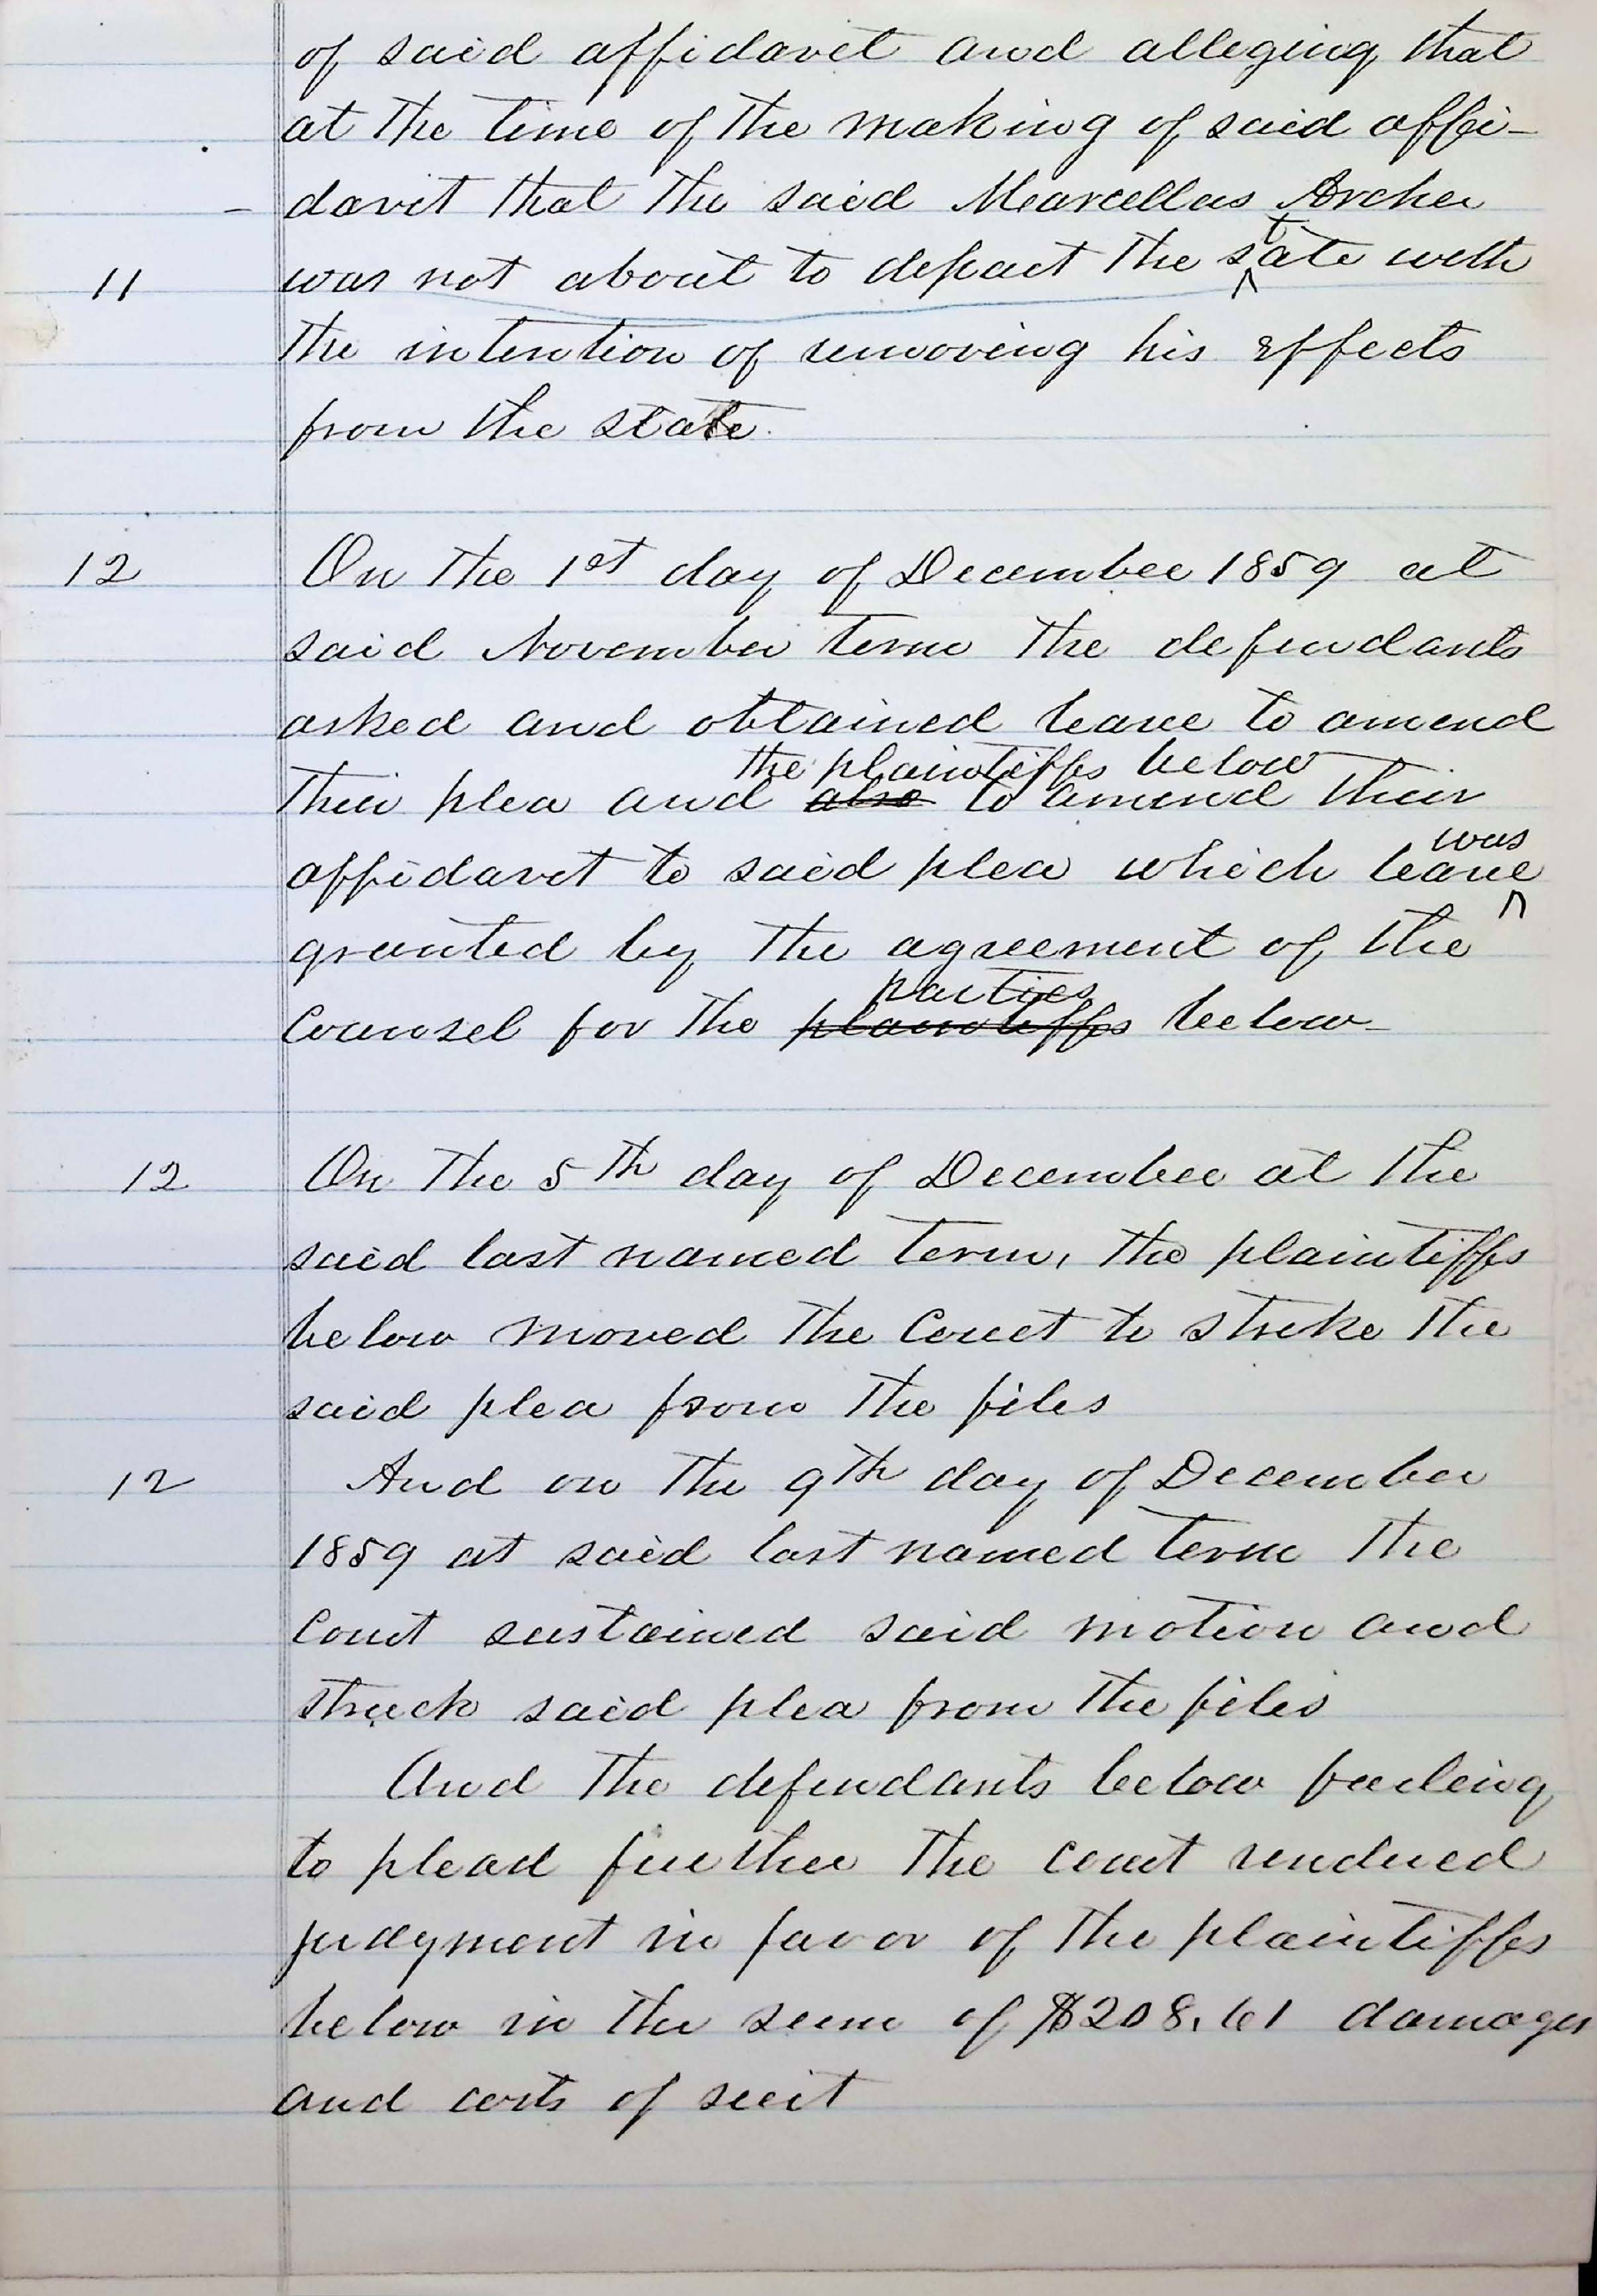 of said affidavit and alleging that
at the time of the making of said affi-
- davit that the said Marcellus Archer
11 was not about to depart the state with
the intention of removing his effects
from the state.
12 On the 1st day of December 1859 at
said November term the defendants
asked and obtained leave to amend
the plaintiffs below
their plea and also to amend their
was
affidavit to said plea which leave
granted by the agreement of the
parties
Counsel for the plaintiffs below
12 On the 5th day of December at the
said last named term, the plaintiffs
below moved the Court to strike the
said plea from the files
12 And on the 9th day of December
1859 at said last named term the
Court sustained said motion and
struck said plea from the files
And the defendants below failing
to plead further the court rendered
judgment in favor of the plaintiffs
below in the sum of $208.61 damages
and costs of suit